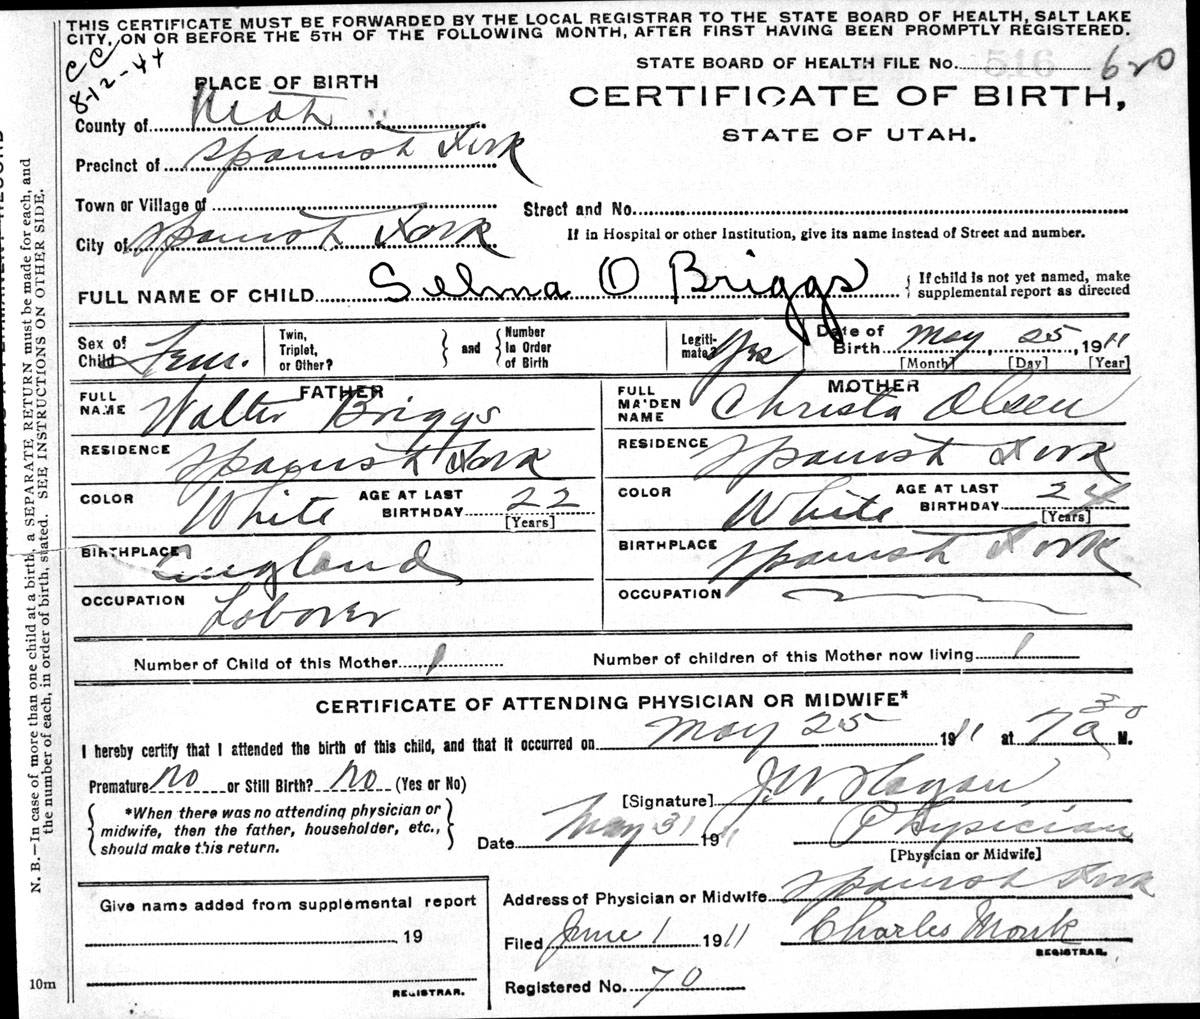 THIS CERTIFICATE MUST BE FORWARDED BY THE LOCAL REGISTRAR TO THE STATE BOARD OF HEALTH, SALT LAKE
CITY, ON OR BEFORE THE 5TH OF THE FOLLOWING MONTH, AFTER FIRST HAVING BEEN PROMPTLY REGISTERED.
CC
8-12-44
STATE BOARD OF HEALTH FILE No. 516 620
PLACE OF BIRTH
CERTIFICATE OF BIRTH,
STATE OF UTAH.
County of Utah
Precinct of Spanish Fork
Town or Village of
Street and No.
City of Spanish Fork
If in Hospital or other Institution, give its name instead of Street and number.
FULL NAME OF CHILD Selma O Briggs
{ If child is not yet named, make
supplemental report as directed
Sex of Child Fem.
Twin, Triplet, or Other? } and { Number In Order of Birth
Legitimate? Yes
Date of Birth May 25, 1911
[Month] [Day] [Year]
FATHER
FULL NAME Walter Briggs
RESIDENCE Spanish Fork
COLOR White AGE AT LAST BIRTHDAY 22
[Years]
BIRTHPLACE England
OCCUPATION Laborer
MOTHER
FULL MAIDEN NAME Christa Olsen
RESIDENCE Spanish Fork
COLOR White AGE AT LAST BIRTHDAY
[Years]
BIRTHPLACE Spanish Fork
OCCUPATION
Number of Child of this Mother 1
Number of children of this Mother now living 1
CERTIFICATE OF ATTENDING PHYSICIAN OR MIDWIFE*
I hereby certify that I attended the birth of this child, and that it occurred on May 25 1911 at 7 30 a M.
Premature No or Still Birth? No (Yes or No)
{ *When there was no attending physician or
midwife, then the father, householder, etc.,
should make this return. }
[Signature] J.W. Hagan
Date May 31 1911
Physician
[Physician or Midwife]
Address of Physician or Midwife Spanish Fork
Give name added from supplemental report
19
REGISTRAR.
Filed June 1 1911
Charles Monk
REGISTRAR.
Registered No. 70
10m
N. B.—In case of more than one child at a birth, a SEPARATE RETURN must be made for each, and
the number of each, in order of birth, stated. SEE INSTRUCTIONS ON OTHER SIDE.